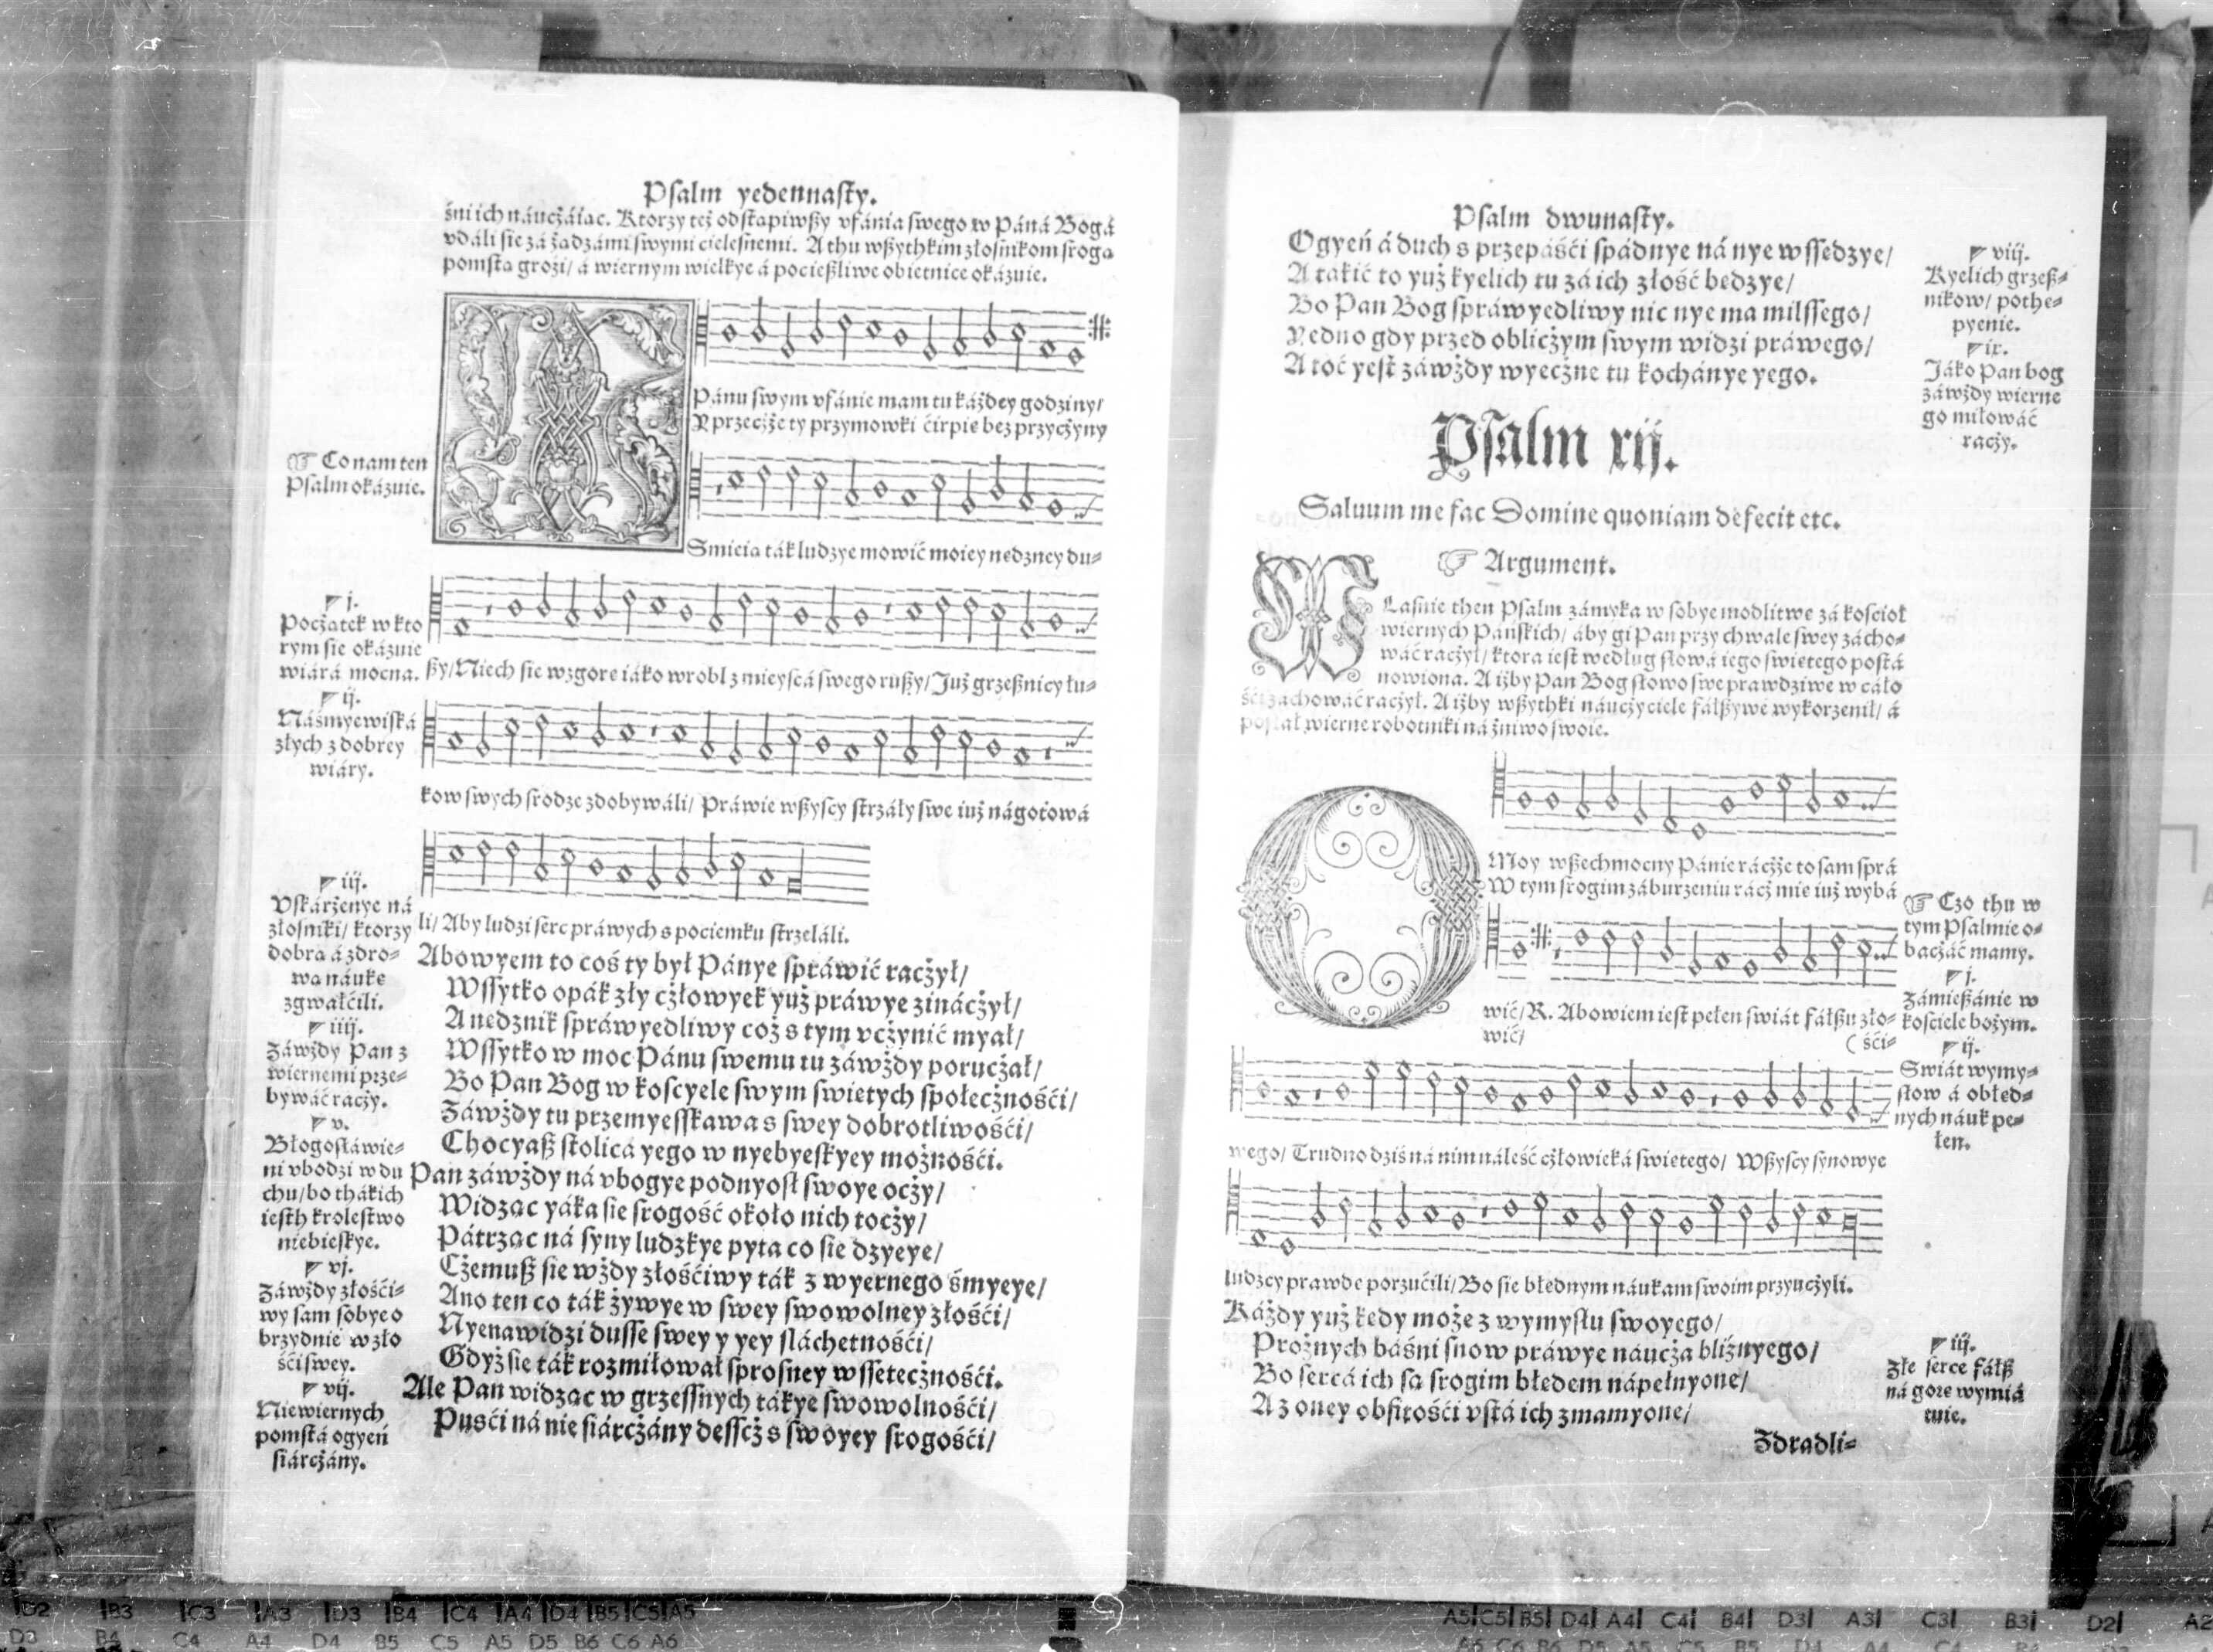 Psalm yedennasty.
śni ich náucżáiac. Ktorzy też odstapiwßy vfánia swego w Páná Bogá
vdáli sie zá żadzámi swymi cielesnemi. A thu wßythkim złosnikom sroga
pomsta grozi/ á wiernym wielkye á pocießliwe obietnice okázuie.
Pánu swym vfánie mam tu káżdey godziny/
Y przecżże ty przymowki ćirpie bez przycżyny
☞ Co nam ten
Psalm okázuie.
Smieia ták ludzye mowić moiey nedzney du⸗
j.
Pocżatek w kto
rym sie okázuie
wiárá mocna.
ßy/ Niech sie wzgore iáko wrobl z mieyscá swego rußy/ Już grzeßnicy łu⸗
ij.
Náśmyewiská
złych z dobrey
wiáry.
kow swych srodze zdobywáli/ Práwie wßyscy strzáły swe iuż nágotowá
iij.
Vskárżenye ná
złosniki/ ktorzy
dobra á zdro⸗
wa náuke
zgwałćili.
li/ Aby ludzi serc práwych s pociemku strzeláli.
Abowyem to coś ty był Pánye spráwić racżył/
Wssytko opák zły cżłowyek yuż práwye zinácżył/
A nedznik spráwyedliwy coż s tym vcżynić myał/
Wssytko w moc Pánu swemu tu záwżdy porucżał/
Bo Pan Bog w koscyele swym swietych społecżnośći/
Záwżdy tu przemyesskawa s swey dobrotliwośći/
Chocyaß stolicá yego w nyebyeskyey możnośći.
iiij.
Záwżdy Pan z
wiernemi prze⸗
bywáć racży.
v.
Błogosłáwie⸗
ni vbodzi w du
chu/ bo thákich
iesth krolestwo
niebieskye.
Pan záwżdy ná vbogye podnyosł swoye ocży/
Widzac yáka sie srogość około nich tocży/
Pátrzac ná syny ludzkye pyta co sie dzyeye/
Cżemuß sie wżdy złośćiwy ták z wyernego śmyeye/
Ano ten co ták żywye w swey swowolney złośći/
Nyenawidzi dusse swey y yey sláchetnośći/
Gdyż sie ták rozmiłował sprosney wssetecżnośći.
vj.
Záwżdy złośći⸗
wy sam sobye o
brzydnie w zło
śći swey.
vij.
Niewiernych
pomstá ogyeń
siárcżány.
Ale Pan widzac w grzessnych tákye swowolnośći/
Pusći ná nie siárcżány desscż s swoyey srogośći/
Psalm dwunasty.
Ogyeń á duch s przepáśći spádnye ná nye wssedzye/
A takić to yuż kyelich tu zá ich złość bedzye/
Bo Pan Bog spráwyedliwy nic nye ma milssego/
Yedno gdy przed oblicżym swym widzi práwego/
A toć yest záwżdy wyecżne tu kochánye yego.
viij.
Kyelich grzeß⸗
nikow/ pothe⸗
pyenie.
ix.
Jáko Pan bog
záwżdy wierne
go miłowáć
racży.
Psalm xij.
Saluum me fac Domine quoniam defecit etc.
☞ Argument.
WLasnie then Psalm zámyka w sobye modlitwe zá kościoł
wiernych Páńskich/ aby gi Pan przy chwale swey zácho⸗
wáć racżył/ ktora iest według słowá iego swietego postá
nowiona. A iżby Pan Bog słowo swe prawdziwe w cáło
śći záchowáć racżył. A iżby wßythki náucżyciele fálßywe wykorzenił/ á
posłał wierne robotniki ná żniwo swoie.
O Moy wßechmocny Pánie rácżże to sam sprá
W tym srogim záburzeniu rácż mie iuż wybá
☞ Czo thu w
tym Psalmie o⸗
bacżáć mamy.
wić/ R. Abowiem iest pełen swiát fálßu zło⸗
wić/ ( śći⸗
j.
Zámießánie w
kosciele bożym.
ij.
Swiát wymy⸗
słow á obłed⸗
nych náuk pe⸗
łen.
wego/ Trudno dziś ná nim náleść cżłowieká swietego/ Wßyscy synowye
ludzcy prawde porzućili/ Bo sie błednym náukam swoim przyucżyli.
Káżdy yuż kedy może z wymysłu swoyego/
Prożnych báśni snow práwye náucża bliźnyego/
Bo sercá ich sa srogim błedem nápełnyone/
A z oney obfitośći vstá ich zmamyone/
iij.
Złe serce fálß
ná gore wymiá
tuie.
Zdradli⸗
D2 B3 C3 A3 D3 B4 C4 A4 D4 B5 C5 A5
D3 B4 C4 A4 D4 B5 C5 A5 D5 B6 C6 A6
A5 C5 B5 D4 A4 C4 B4 D3 A3 C3 B3 D2 A2
A6 C6 B6 D5 A5 C5 B5 D4 A4 C4 B4